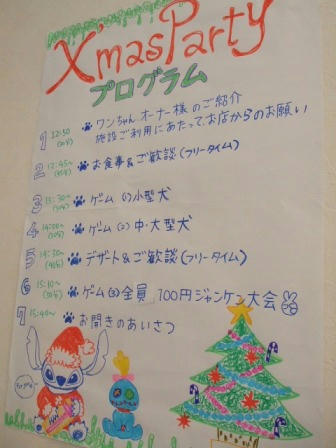 X'mas Party
プログラム
1 12:30 ワンちゃん・オーナー様のご紹介
施設ご利用にあたって、お店からのお願い
2 12:45~ お食事&ご歓談(フリータイム)
3 13:30~ ゲーム(1)小型犬
4 14:00~ ゲーム(2)中・大型犬
5 14:30~ デザート&ご歓談(フリータイム)
6 15:10~ ゲーム(3)全員、100円ジャンケン大会
7 15:40~ お開きのあいさつ